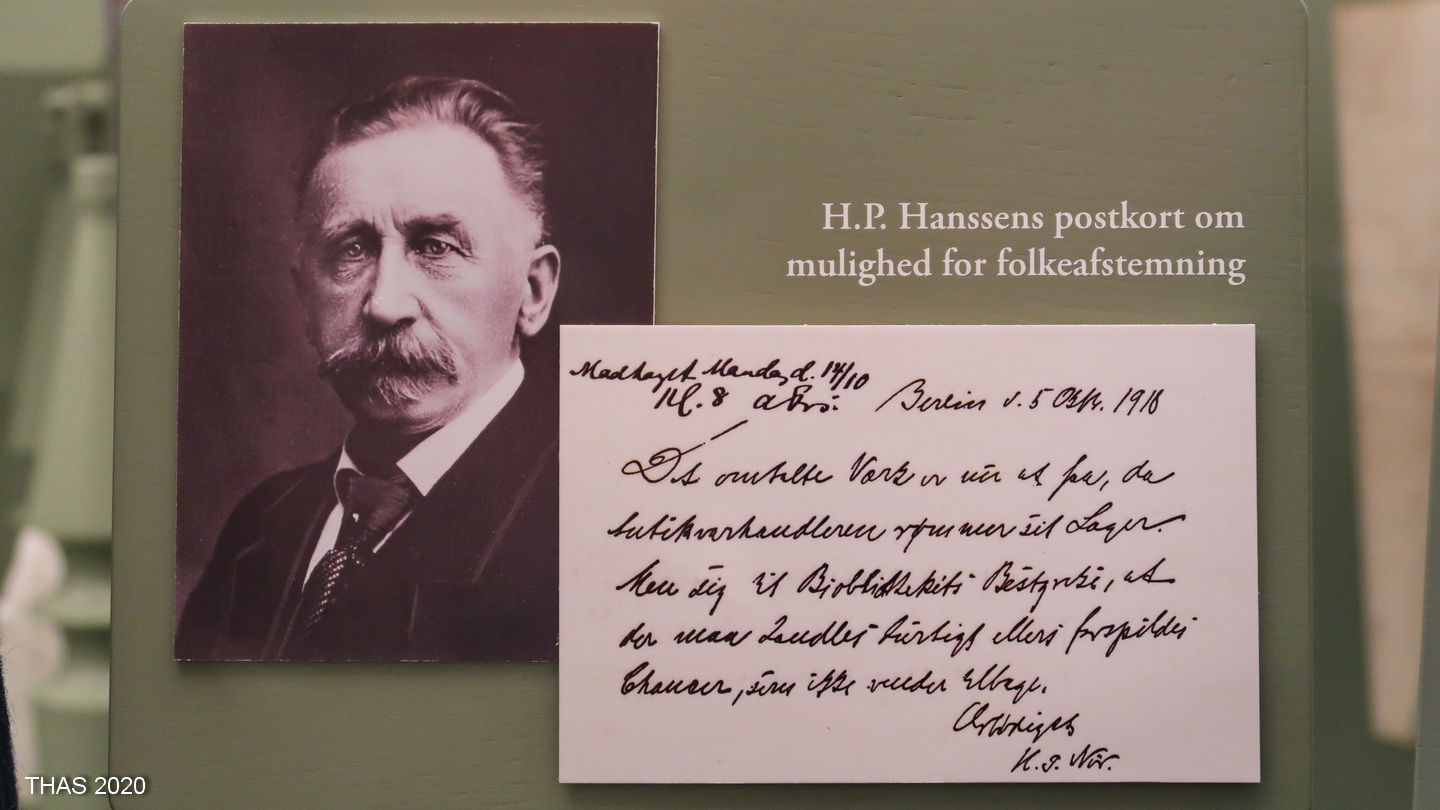 H.P. Hanssens postkort om
mulighed for folkeafstemning
Modtaget Mandag d. 14/10
Kl. 8 aftn.
Berlin d. 5 Oktr. 1918
Det omtalte Værk er nu at faa, da
Antikvarhandleren rømmer sit Lager.
Men sig til Bibliothekets Bestyrelse, at
der maa handles hurtigt ellers forspildes
Chancer, som ikke vender tilbage.
Ærbødigst
H. P.
THAS 2020